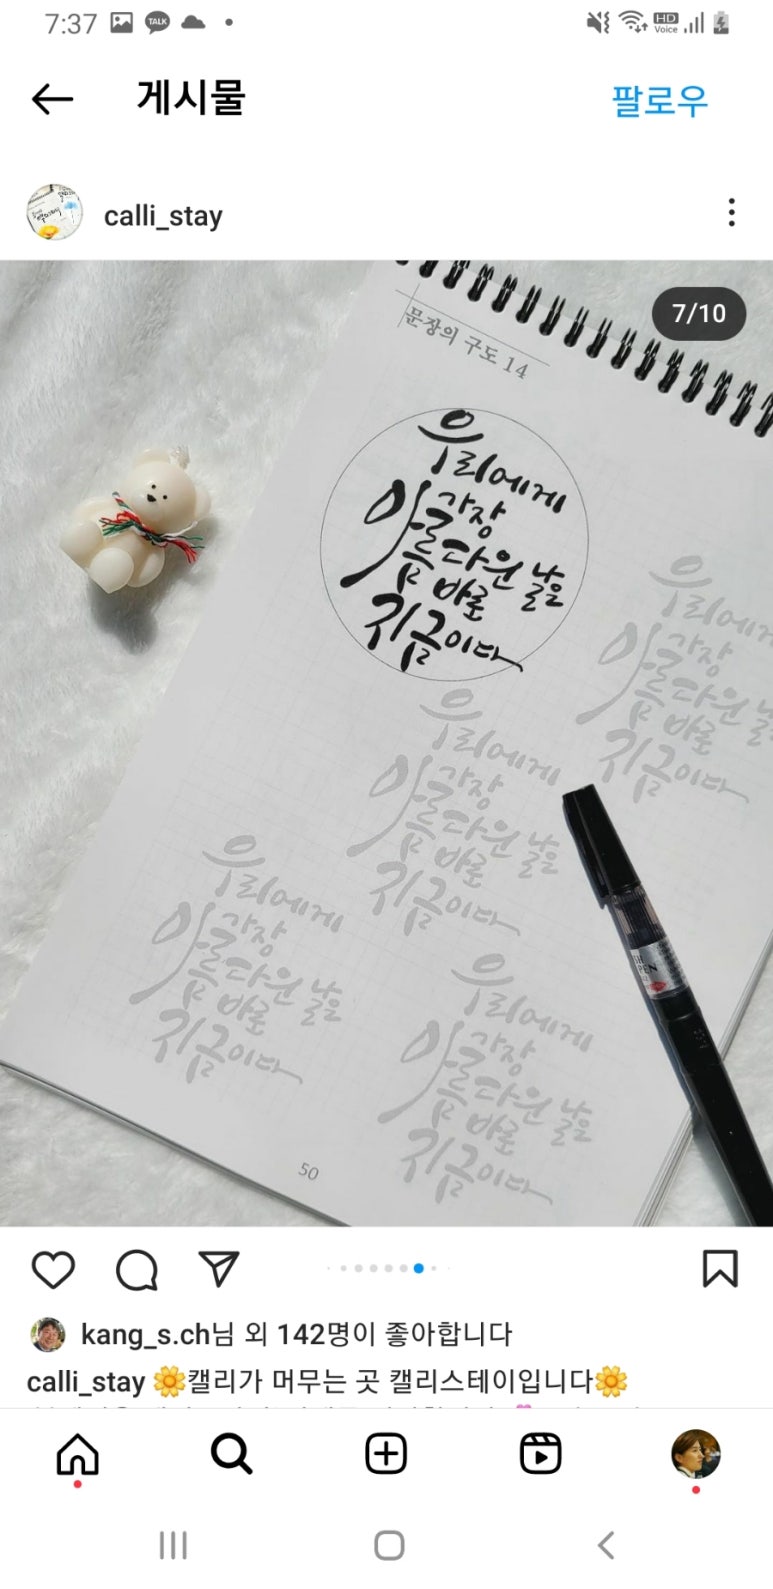 7:37
TALK
HD
Voice
게시물
팔로우
calli_stay
7/10
문장의 구도 14
우리에게
가장
아름다운 날은
바로
지금이다
우리에게
가장
아름다운 날은
바로
지금이다
우리에게
가장
아름다운 날은
바로
지금이다
우리에게
가장
아름다운 날은
바로
지금이다
우리에게
가장
아름다운 날은
바로
지금이다
PEN
50
kang_s.ch님 외 142명이 좋아합니다
calli_stay 🌼캘리가 머무는 곳 캘리스테이입니다🌼